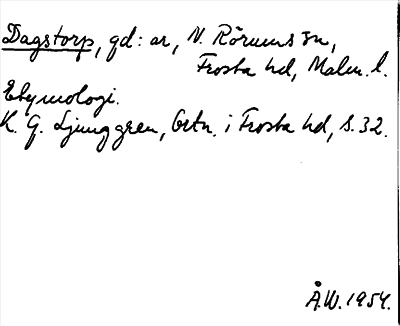 Dagstorp, gd: ar, N. Rörums sn,
Frosta hd, Malm. l.
Etymologi.
K. G. Ljunggren, Ortn. i Frosta hd, s. 32.
Å.W. 1954.